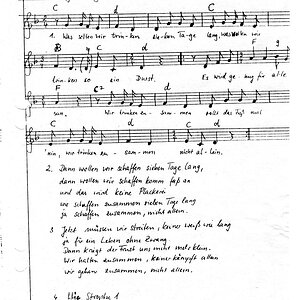 C d C
1. Was wollen wir trin-ken sie-ben Ta-ge lang, was wollen wir
B g C d F g
trin-ken so ein Durst. Es wird ge-nug für alle
F C² d
sein, Wir trinken zu-sam-men rollt das Faß mal
C d C d
rein, wir trinken zu-sam-men nicht al-lein.
2. Dann wollen wir schaffen sieben Tage lang,
dann wollen wir schaffen komm faß an
und das wird keine Plackerei
wir schaffen zusammen sieben Tage lang
ja schaffen zusammen, nicht allein.
3 Jetzt müssen wir streiten, keiner weiß wie lang
ja für ein Leben ohne Zwang
Dann kriegt der Frust uns nicht mehr klein.
Wir halten zusammen, keiner kämpft allein
wir gehen zusammen, nicht allein.
4 Strophe 1